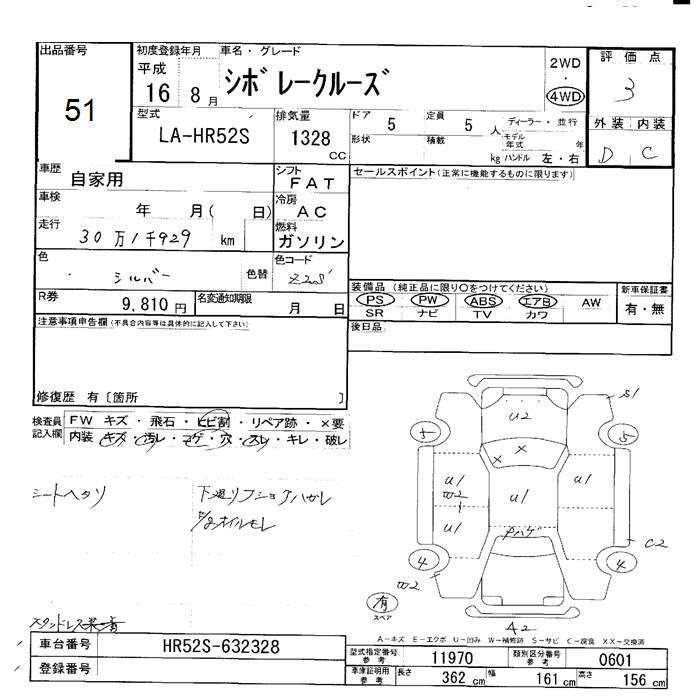 出品番号 初度登録年月 車名・グレード
51
平成
16 8月 シボレークルーズ
2WD
・
4WD
評価点
3
型式 排気量 ドア 5 定員 5人 ディーラー・並行
LA-HR52S 1328 CC
形状 積載 kg モデル年式 年
ハンドル 左・右
外装 内装
D C
車歴 自家用
シフト FAT
セールスポイント(正常に機能するものに限ります)
車検 年 月( 日)
冷房 AC
走行 30万1千929 km
燃料 ガソリン
色 シルバー 色替
色コード Z2S
装備品(純正品に限り○をつけてください) 新車保証書
PS PW ABS エアB AW 有・無
SR ナビ TV カワ
R券 9,810円 名変通知期限 月 日
後日品
注意事項申告欄(不具合内容等は具体的に記入して下さい)
修復歴 有〔箇所 〕
検査員記入欄
FW キズ・飛石・ヒビ割・リペア跡・×要
内装 キズ・汚レ・コゲ・穴・スレ・キレ・破レ
シートヘタリ
S1
U2
5 5
× ×
U1 U1
W2 U1
U1
ハゲ
C2
4 4
W2
有
スペア
A2
A-キズ E-エクボ U-凹み W-補修跡 S-サビ C-腐食 XX-交換済
車台番号 HR52S-632328
登録番号
型式指定番号参考 11970 類別区分番号参考 0601
車庫証明用参考 長さ 362 cm 幅 161 cm 高さ 156 cm